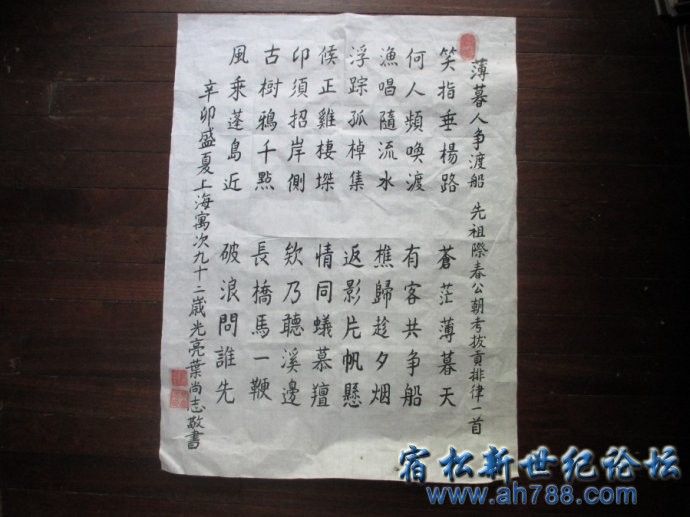 薄暮人争渡船 先祖際春公朝考拔貢排律一首
笑指垂楊路 蒼茫薄暮天
何人頻喚渡 有客共争船
漁唱隨流水 樵歸趁夕烟
浮踪孤棹集 返影片帆懸
候正雞棲塒 情同蟻慕羶
卬須招岸側 欸乃聽溪邊
古樹鴉千點 長橋馬一鞭
風乘蓬島近 破浪問誰先
辛卯盛夏上海寓次九十二歲光亮葉尚志敬書
宿松新世纪论坛
www.ah788.com